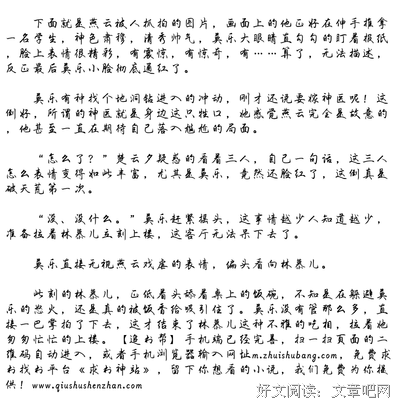 下面就是燕云被人抓拍的图片，画面上的他正好在伸手推拿
一名学生，神色肃穆，清秀帅气，莫乐大眼睛直勾勾的盯着报纸，
脸上表情很精彩，有震惊，有惊奇，有……算了，无法描述，
反正最后莫乐小脸彻底通红了。
莫乐有种找个地洞钻进入的冲动，刚才还说要嫁神医呢！这
倒好，所谓的神医就是身边这只牲口，她感觉燕云完全是故意的
，他甚至一直在期待自己落入尴尬的局面。
“怎么了？”楚云夕疑惑的看着三人，自己一句话，这三人
怎么表情变得如此丰富，尤其是莫乐，竟然还脸红了，这倒真是
破天荒第一次。
“没、没什么。”莫乐赶紧摇头，这事情越少人知道越少，
准备拉着林慕儿立刻上楼，这客厅无法呆下去了。
莫乐直接无视燕云戏虐的表情，偏头看向林慕儿。
此刻的林慕儿，正低着头舔着桌上的饭碗，不知是在躲避莫
乐的怒火，还是真的被饭香给吸引住了。莫乐没有管那么多，直
接一巴掌拍了下去，这才结束了林慕儿这种不雅的吃相，拉着她
匆匆忙忙的上楼。【追书帮】手机端已经完善，扫一扫页面的二
维码自动进入，或者手机浏览器输入网址m.zhuishubang.com，免费求
书找书平台《求书神站》，留下你想看的小说，我们免费为你提
供！www.qiushushenzhan.com
好文阅读：文章吧网